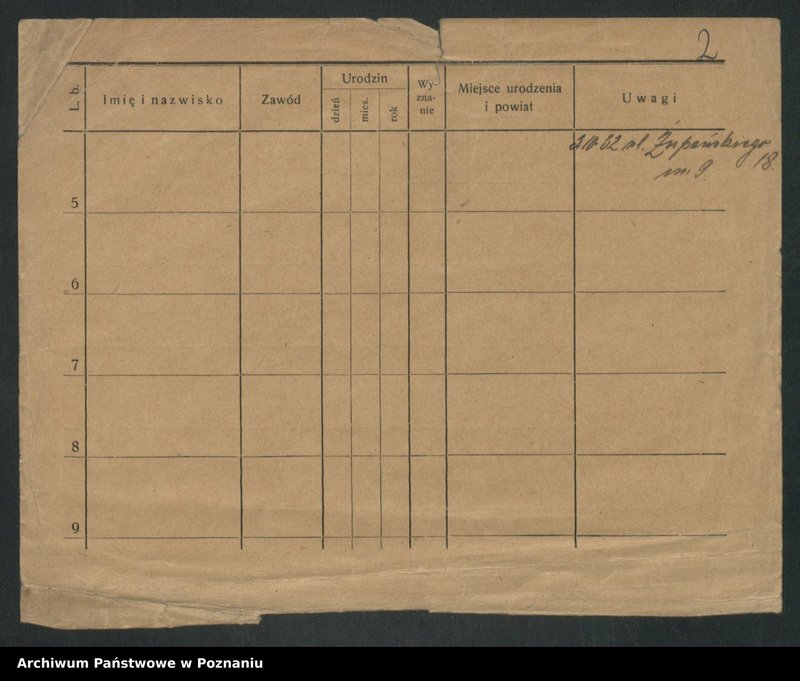 2
L. b.
Imię i nazwisko
Zawód
Urodzin
dzień
mies.
rok
Wy-
zna-
nie
Miejsce urodzenia
i powiat
Uwagi
3.10 32 ul. Żupańskiego
18.
m 9.
5
6
7
8
9
Archiwum Państwowe w Poznaniu